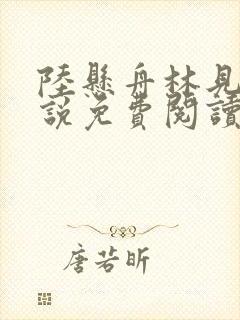 陸懸舟林見
說免費閱讀
唐若昕